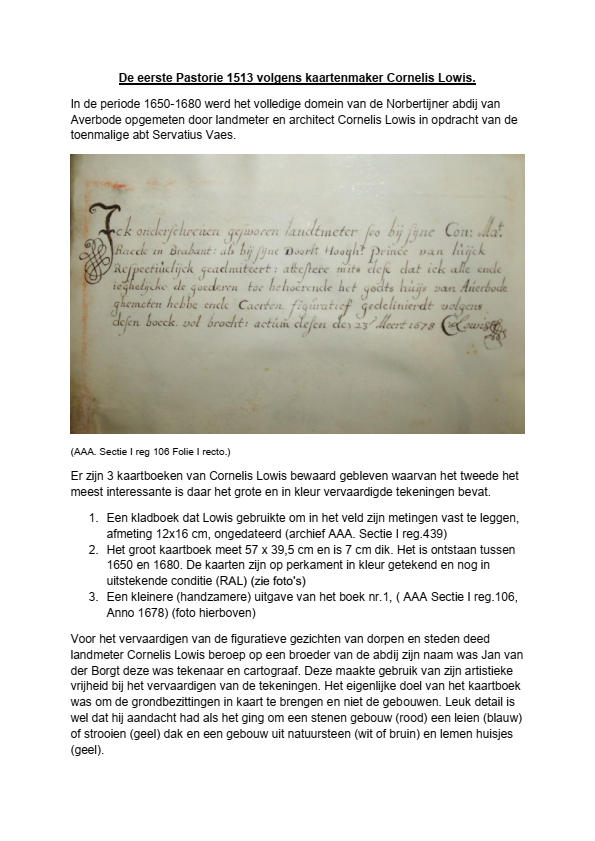 De eerste Pastorie 1513 volgens kaartenmaker Cornelis Lowis.
In de periode 1650-1680 werd het volledige domein van de Norbertijner abdij van
Averbode opgemeten door landmeter en architect Cornelis Lowis in opdracht van de
toenmalige abt Servatius Vaes.
Ick onderschreven gesworen landtmeter soo bij syne Con: Mat.
Raede in Brabant: als bij syne Doorlt Hooght Prince van luijck
Respectivelijck geadmitteert: attestere mits dese dat ick alle ende
ieghelycke de goederen toe behoorende het godts huijs van Averbode
ghemeten hebbe ende Caerten figuratief gedelinierdt volgens
desen boeck vol brocht: actum desen den 23 Meert 1678 CLowis
(AAA. Sectie I reg 106 Folie I recto.)
Er zijn 3 kaartboeken van Cornelis Lowis bewaard gebleven waarvan het tweede het
meest interessante is daar het grote en in kleur vervaardigde tekeningen bevat.
1. Een kladboek dat Lowis gebruikte om in het veld zijn metingen vast te leggen,
afmeting 12x16 cm, ongedateerd (archief AAA. Sectie I reg.439)
2. Het groot kaartboek meet 57 x 39,5 cm en is 7 cm dik. Het is ontstaan tussen
1650 en 1680. De kaarten zijn op perkament in kleur getekend en nog in
uitstekende conditie (RAL) (zie foto's)
3. Een kleinere (handzamere) uitgave van het boek nr.1, ( AAA Sectie I reg.106,
Anno 1678) (foto hierboven)
Voor het vervaardigen van de figuratieve gezichten van dorpen en steden deed
landmeter Cornelis Lowis beroep op een broeder van de abdij zijn naam was Jan van
der Borgt deze was tekenaar en cartograaf. Deze maakte gebruik van zijn artistieke
vrijheid bij het vervaardigen van de tekeningen. Het eigenlijke doel van het kaartboek
was om de grondbezittingen in kaart te brengen en niet de gebouwen. Leuk detail is
wel dat hij aandacht had als het ging om een stenen gebouw (rood) een leien (blauw)
of strooien (geel) dak en een gebouw uit natuursteen (wit of bruin) en lemen huisjes
(geel).